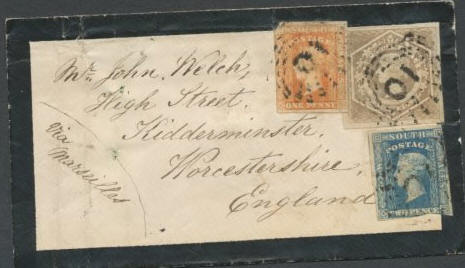 Mr. John Welch,
High Street,
Kidderminster,
Worcestershire,
England
via Marseilles
ONE PENNY
10
SOUTH
POSTAGE
TWO PENCE